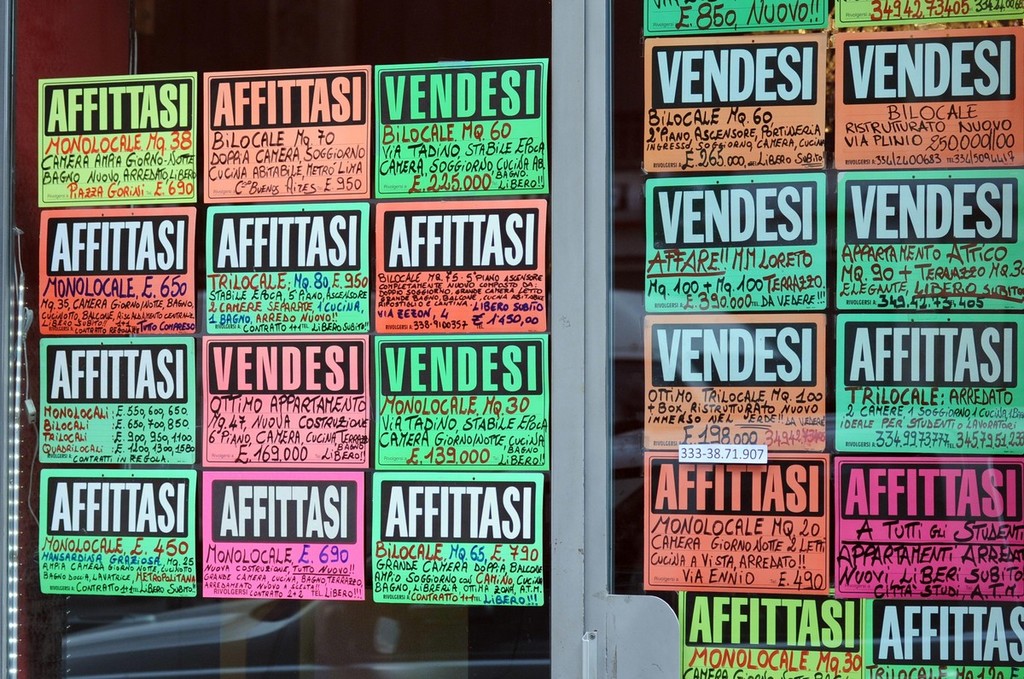 AFFITTASI
MONOLOCALE MQ. 38
CAMERA AMPIA GIORNO-NOTTE
BAGNO NUOVO, ARREDATO LIBERO
PIAZZA GORINI E. 690
AFFITTASI
BILOCALE MQ 70
DOPPIA CAMERA, SOGGIORNO
CUCINA ABITABILE, METRO LIMA
C.SO BUENOS AIRES E 950
VENDESI
BILOCALE MQ. 60
VIA TADINO, STABILE EPOCA
CAMERA, SOGGIORNO, CUCINA AB.
BAGNO.
E 225.000 LIBERO!!
AFFITTASI
MONOLOCALE, E. 650
MQ 35, CAMERA GIORNO/NOTTE, BAGNO,
CUCINOTTO, BALCONE, RISCALDAMENTO CENTRALE
LIBERO SUBITO!! TUTTO COMPRESO
CONTRATTO REGOLARE
AFFITTASI
TRILOCALE, MQ. 80, E 950
STABILE EPOCA, 5° PIANO, ASCENSORE
2 CAMERE SEPARATE, 1 CUCINA,
1 BAGNO, ARREDO NUOVO!!
CONTRATTO 1+1 LIBERO SUBITO!!
AFFITTASI
BILOCALE MQ. 75 - 5° PIANO ASCENSORE
COMPLETAMENTE NUOVO COMPOSTO DA
GRANDE BAGNO, BALCONE, CUCINA ABITABILE
RIPOSTIGLIO E CANTINA. LIBERO SUBITO
VIA ZEZON, 4 E 1150,00
RIVOLGERSI A 338-9100357
AFFITTASI
MONOLOCALI: E. 550, 600, 650
BILOCALI: E. 650, 700, 850
TRILOCALI: E. 900, 950, 1100
QUADRILOCALI: E. 1200, 1300, 1580
CONTRATTI IN REGOLA.
VENDESI
OTTIMO APPARTAMENTO
MQ. 47, NUOVA COSTRUZIONE
6° PIANO, CAMERA, CUCINA, TERRAZZO
BAGNO
E 169.000 LIBERO!!
VENDESI
MONOLOCALE, MQ. 30
VIA TADINO, STABILE EPOCA
CAMERA GIORNO/NOTTE CUCINA
BAGNO
E 139.000 LIBERO!!
AFFITTASI
MONOLOCALE, E. 450
MANSARDINA GRAZIOSA, MQ. 25
AMPIA CAMERA GIORNO NOTTE, CUCINOTTO
BAGNO DOCCIA, LAVATRICE, METROPOLITANA
CONTRATTO 1+1 LIBERO SUBITO!!
AFFITTASI
MONOLOCALE E. 690
NUOVA COSTRUZIONE, TUTTO NUOVO!!
GRANDE CAMERA, CUCINA, BAGNO, TERRAZZO,
ARREDAMENTO NUOVO A STUDENTI
CONTRATTO 2+2 LIBERO!!!
AFFITTASI
BILOCALE, MQ 65, E. 790
GRANDE CAMERA DOPPIA, BALCONE
AMPIO SOGGIORNO CON CAMINO, CUCINA
BAGNO, LIBRERIA, OTTIMA ZONA, A.T.M.
CONTRATTO 1+1 LIBERO!!!
E. 860, NUOVO!!
3494273405
VENDESI
BILOCALE MQ. 60
2° PIANO, ASCENSORE, PORTINERIA
INGRESSO, SOGGIORNO, CAMERA, CUCINA
E. 265.000 LIBERO SUBITO
VENDESI
BILOCALE
RISTRUTTURATO NUOVO
VIA PLINIO 250000/00
VENDESI
AFFARE!! MM LORETO
MQ. 100 + MQ 100 TERRAZZO
E. 390.000 DA VEDERE!!
VENDESI
APPARTAMENTO ATTICO
MQ. 90 + TERRAZZO MQ.
ELEGANTE, LIBERO SUBITO
349.42.73.405
VENDESI
OTTIMO TRILOCALE MQ. 100
+ BOX, RISTRUTTURATO NUOVO
IMMERSO NEL "VERDE"!! DA VEDERE
E 198.000
333-38.71.907
AFFITTASI
TRILOCALE: ARREDATO
2 CAMERE 1 SOGGIORNO 1 CUCINA 1
IDEALE PER STUDENTI O LAVORATORI
AFFITTASI
MONOLOCALE MQ. 20
CAMERA GIORNO NOTTE 2 LETTI
CUCINA A VISTA, ARREDATO!!
VIA ENNIO E. 490
AFFITTASI
A TUTTI GLI STUDENTI
APPARTAMENTI ARREDATI
NUOVI, LIBERI SUBITO
CITTA' STUDI A.T.M.
AFFITTASI
MONOLOCALE MQ. 30
CAMERA GIORNO/NOTTE
AFFITTAS
TRILOCALE MQ. 120 E